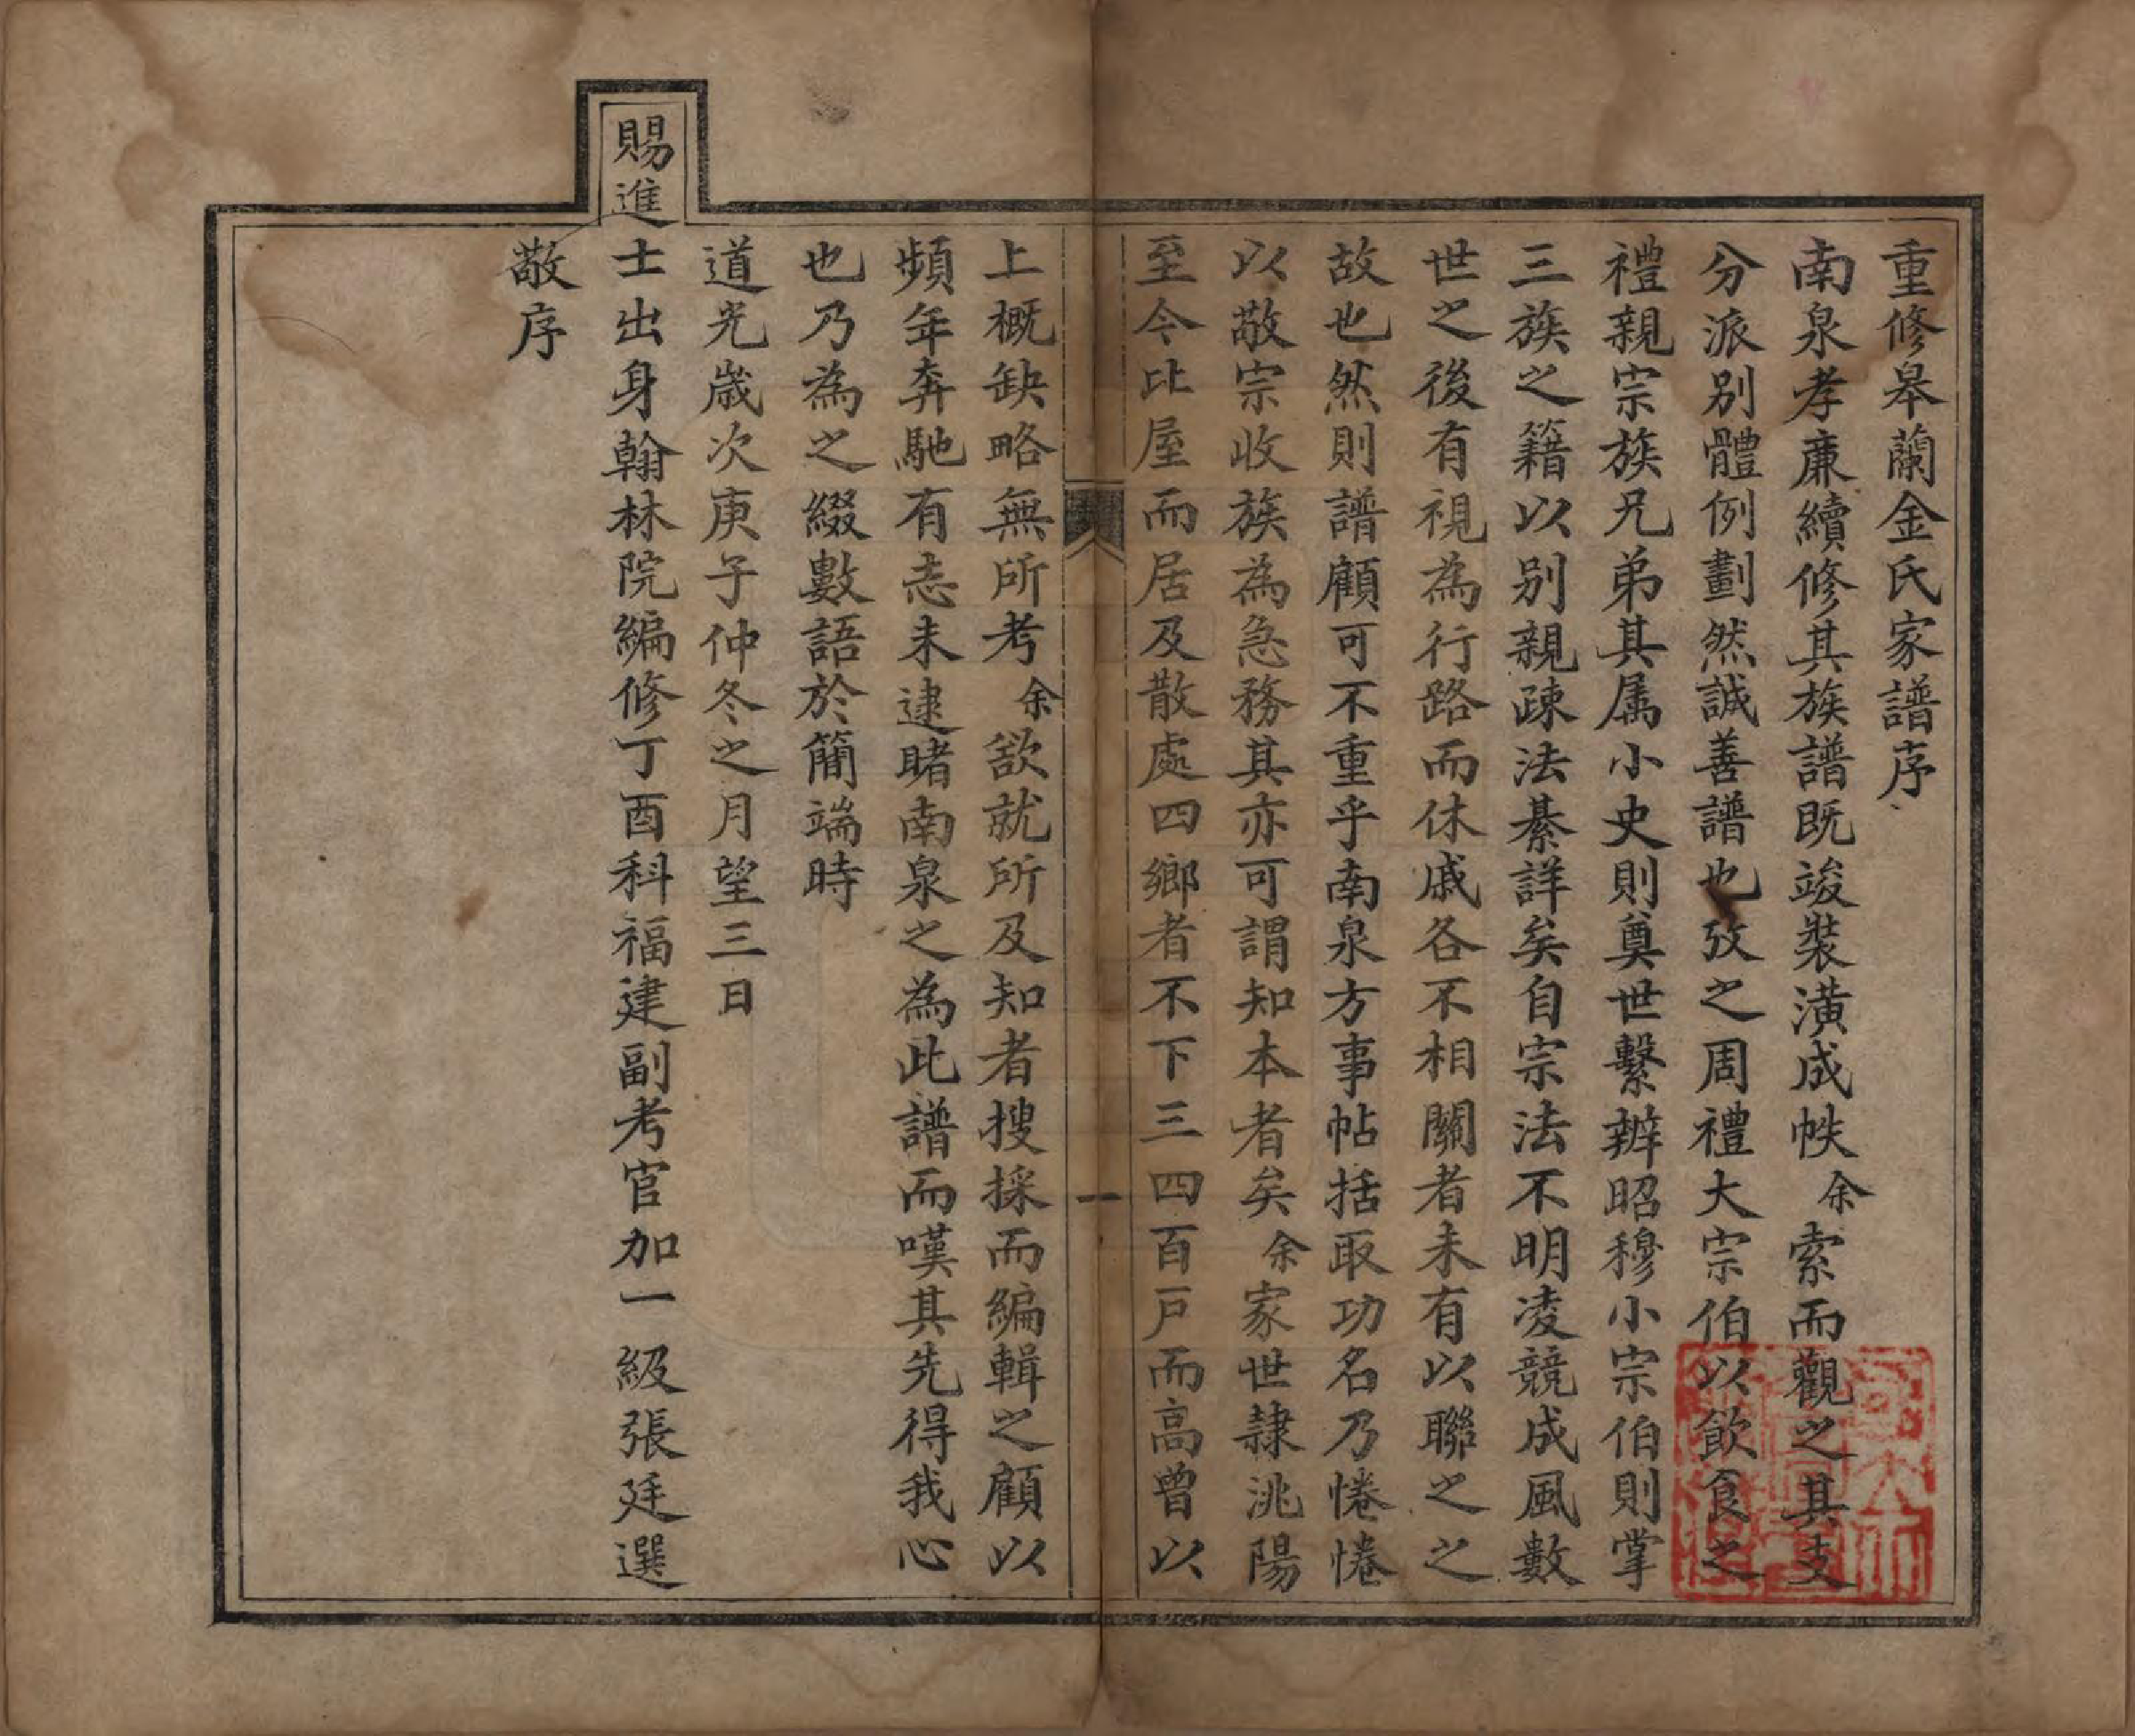 重修皋蘭金氏家譜序
南泉孝廉續修其族譜既竣裝潢成帙余索而觀之其支
分派別體例劃然誠善譜也攷之周禮大宗伯以飲食之
禮親宗族兄弟其属小史則奠世繫辨昭穆小宗伯則掌
三族之籍以別親疎法綦詳矣自宗法不明凌競成風數
世之後有視為行路而休戚各不相關者未有以聯之之
故也然則譜顧可不重乎南泉方事帖括取功名乃惓惓
以敬宗收族為急務其亦可謂知本者矣余家世隷洮陽
至今比屋而居及散處四鄉者不下三四百戶而高曾以
一
上概缺略無所考余欲就所及知者搜採而編輯之顧以
頻年奔馳有志未逮睹南泉之為此譜而嘆其先得我心
也乃為之綴數語於簡端時
道光歲次庚子仲冬之月望三日
賜進士出身翰林院編修丁酉科福建副考官加一級張廷選
敬序